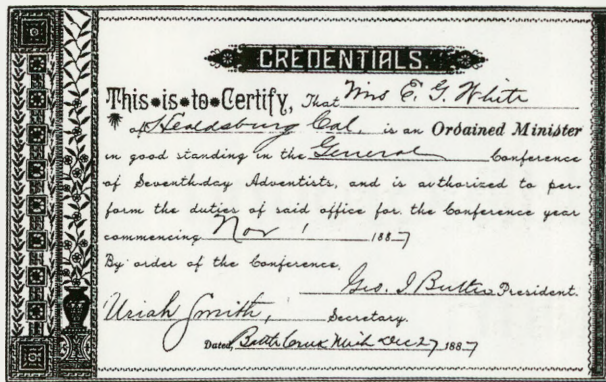 CREDENTIALS.
This is to Certify, That Mrs E. G. White
of Healdsburg Cal, is an Ordained Minister
in good standing in the General Conference
of Seventh-day Adventists, and is authorized to per-
form the duties of said office for the Conference year
commencing Nov 1 1887
By order of the Conference,
Geo. I Butler President.
Uriah Smith, Secretary.
Dated, Battle Creek Mich Dec 27 1887